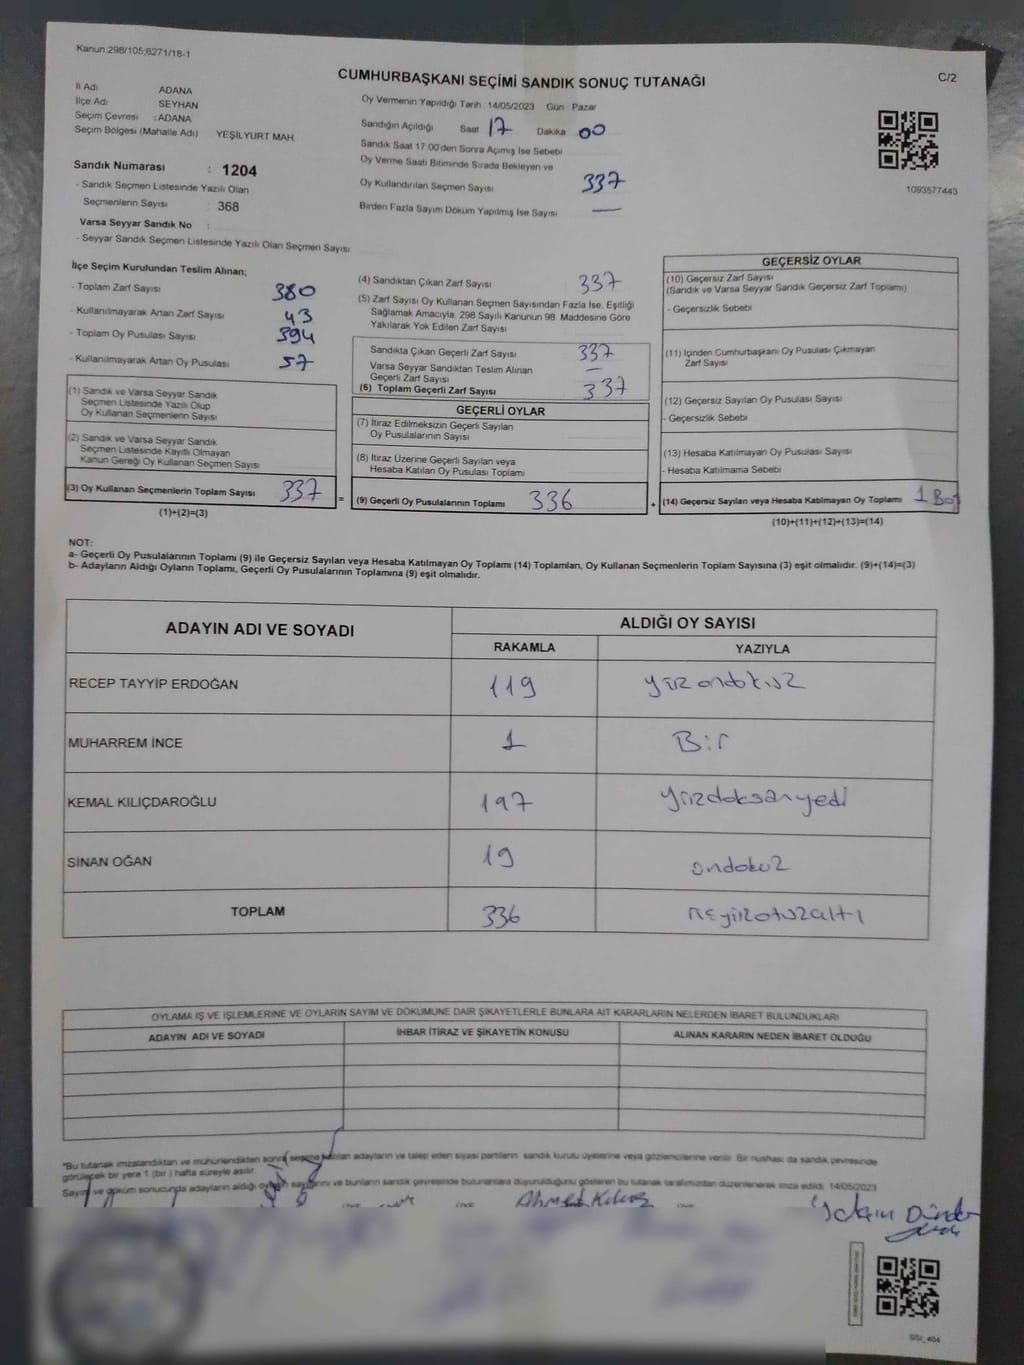 Kanun.298/105;6271/18-1
C/2
CUMHURBAŞKANI SEÇİMİ SANDIK SONUÇ TUTANAĞI
İl Adı ADANA
İlçe Adı SEYHAN
Seçim Çevresi :ADANA
Seçim Bölgesi (Mahalle Adı) YEŞİLYURT MAH.
Sandık Numarası : 1204
- Sandık Seçmen Listesinde Yazılı Olan
Seçmenlerin Sayısı : 368
Varsa Seyyar Sandık No :
- Seyyar Sandık Seçmen Listesinde Yazılı Olan Seçmen Sayısı
Oy Vermenin Yapıldığı Tarih 14/05/2023 Gün Pazar
Sandığın Açıldığı Saat 17 Dakika 00
Sandık Saat 17:00'den Sonra Açımış İse Sebebi
Oy Verme Saati Bitiminde Sırada Bekleyen ve
Oy Kullandırılan Seçmen Sayısı 337
Birden Fazla Sayım Döküm Yapılmış İse Sayısı —
1093577443
İlçe Seçim Kurulundan Teslim Alınan;
- Toplam Zarf Sayısı 380
- Kullanılmayarak Artan Zarf Sayısı 43
- Toplam Oy Pusulası Sayısı 394
- Kullanılmayarak Artan Oy Pusulası 57
(1) Sandık ve Varsa Seyyar Sandık
Seçmen Listesinde Yazılı Olup
Oy Kullanan Seçmenlerin Sayısı
(2) Sandık ve Varsa Seyyar Sandık
Seçmen Listesinde Kayıtlı Olmayan
Kanun Gereği Oy Kullanan Seçmen Sayısı
(3) Oy Kullanan Seçmenlerin Toplam Sayısı 337
(1)+(2)=(3)
=
(4) Sandıktan Çıkan Zarf Sayısı 337
(5) Zarf Sayısı Oy Kullanan Seçmen Sayısından Fazla İse, Eşitliği
Sağlamak Amacıyla, 298 Sayılı Kanunun 98. Maddesine Göre
Yakılarak Yok Edilen Zarf Sayısı
Sandıkta Çıkan Geçerli Zarf Sayısı 337
Varsa Seyyar Sandıktan Teslim Alınan —
Geçerli Zarf Sayısı
(6) Toplam Geçerli Zarf Sayısı 337
GEÇERLİ OYLAR
(7) İtiraz Edilmeksizin Geçerli Sayılan
Oy Pusulalarının Sayısı
(8) İtiraz Üzerine Geçerli Sayılan veya
Hesaba Katılan Oy Pusulası Toplamı
(9) Geçerli Oy Pusulalarının Toplamı 336
+
GEÇERSİZ OYLAR
(10) Geçersiz Zarf Sayısı
(Sandık ve Varsa Seyyar Sandık Geçersiz Zarf Toplamı)
- Geçersizlik Sebebi
(11) İçinden Cumhurbaşkanı Oy Pusulası Çıkmayan
Zarf Sayısı
(12) Geçersiz Sayılan Oy Pusulası Sayısı
- Geçersizlik Sebebi
(13) Hesaba Katılmayan Oy Pusulası Sayısı
- Hesaba Katılmama Sebebi
(14) Geçersiz Sayılan veya Hesaba Katılmayan Oy Toplamı 1 Boş
(10)+(11)+(12)+(13)=(14)
NOT:
a- Geçerli Oy Pusulalarının Toplamı (9) ile Geçersiz Sayılan veya Hesaba Katılmayan Oy Toplamı (14) Toplamları, Oy Kullanan Seçmenlerin Toplam Sayısına (3) eşit olmalıdır. (9)+(14)=(3)
b- Adayların Aldığı Oyların Toplamı, Geçerli Oy Pusulalarının Toplamına (9) eşit olmalıdır.
ADAYIN ADI VE SOYADI ALDIĞI OY SAYISI
RAKAMLA YAZIYLA
RECEP TAYYİP ERDOĞAN 119 yüzondokuz
MUHARREM İNCE 1 Bir
KEMAL KILIÇDAROĞLU 197 yüzdoksanyedi
SİNAN OĞAN 19 ondokuz
TOPLAM 336
OYLAMA İŞ VE İŞLEMLERİNE VE OYLARIN SAYIM VE DÖKÜMÜNE DAİR ŞİKAYETLERLE BUNLARA AİT KARARLARIN NELERDEN İBARET BULUNDUKLARI
ADAYIN ADI VE SOYADI İHBAR İTİRAZ VE ŞİKAYETİN KONUSU ALINAN KARARIN NEDEN İBARET OLDUĞU
*Bu tutanak imzalandıktan ve mühürlendikten sonra seçime katılan adayların ve talep eden siyasi partilerin sandık kurulu üyelerine veya gözlemcilerine verilir. Bir nüshası da sandık çevresinde
görülecek bir yere 1 (bir ) hafta süreyle asılır.
Sayım ve döküm sonucunda adayların aldığı oyların sayılarını ve bunların sandık çevresinde bulunanlara duyurulduğunu gösteren bu tutanak tarafımızdan düzenlenerek imza edildi. 14/05/2023